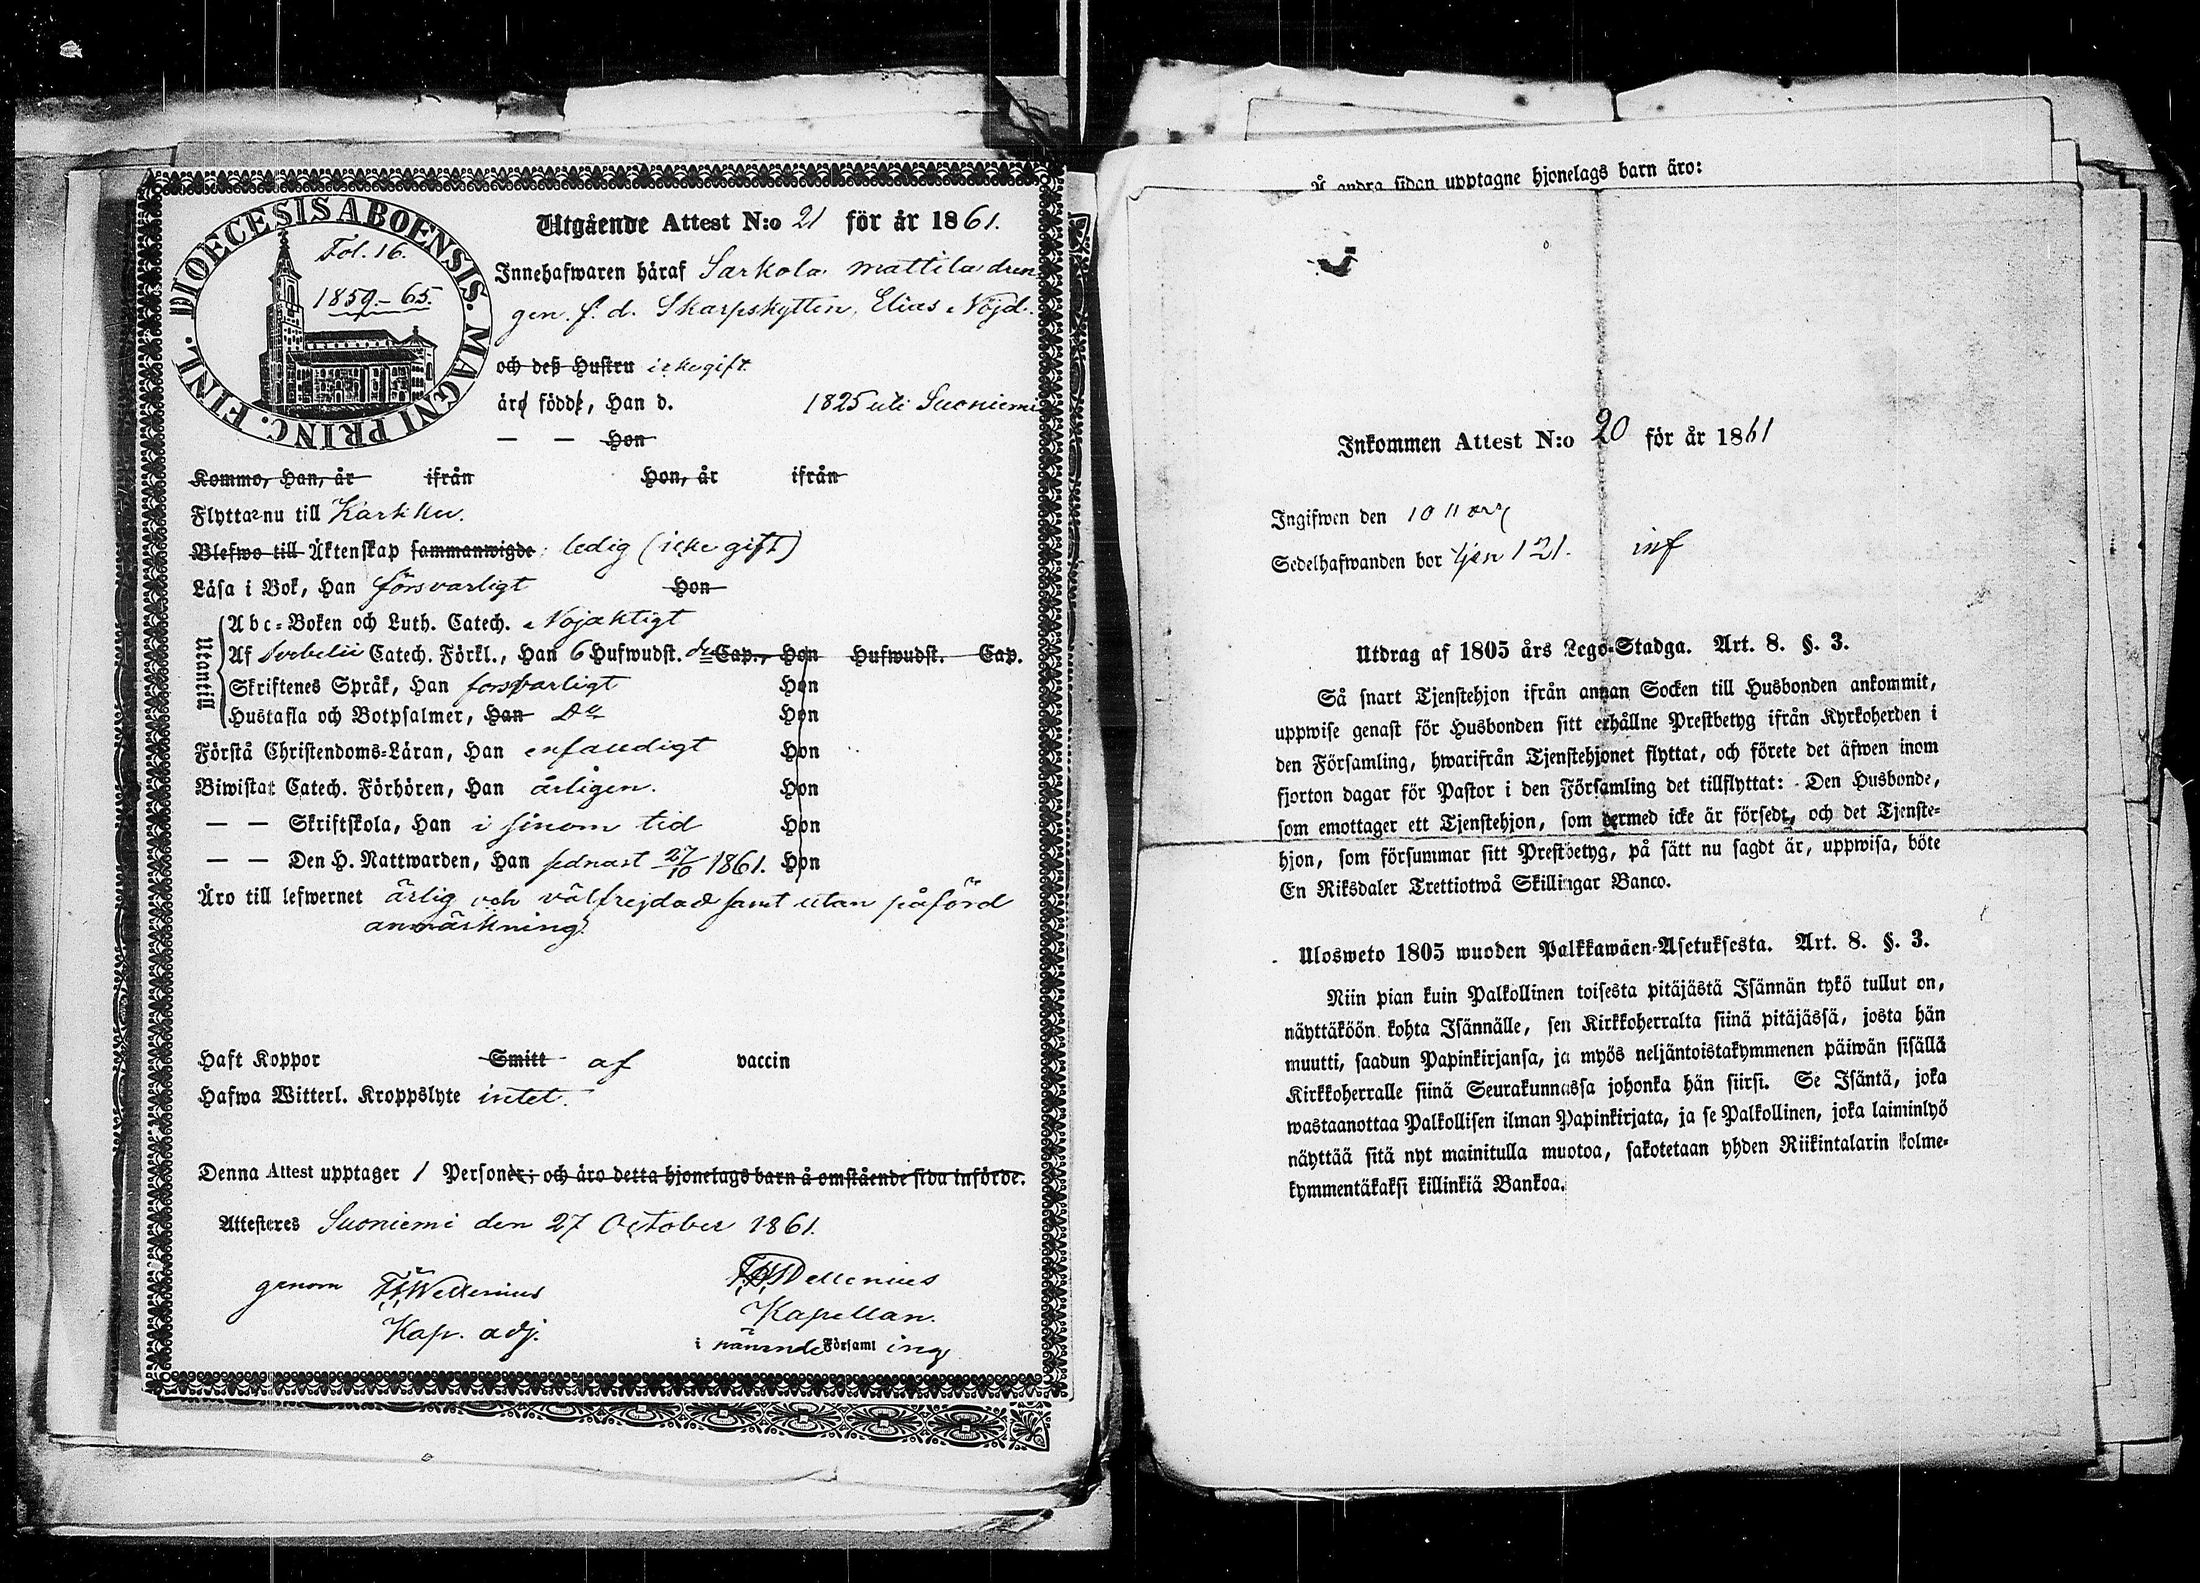 DIOECESIS ABOENSIS. MAGNI PRINC. FINL.
Fol. 16.
1859.–65.
Utgående Attest N:o 21 för år 1861.
Innehafwaren häraf Sarkola Mattila drän
gen f. d. Skarpskytten, Elias Nöjd.
och deß Hustru icke gift
äro födde, Han d. 1825 uti Suoniemi
— — Hon
Kommo, Han, år ifrån Hon, år ifrån
Flyttar nu till Karkku.
Blefwo till Äktenskap sammanwigde; ledig (icke gift)
Läsa i Bok, Han försvarligt Hon
Utantill
Abc-Boken och Luth. Catech. Nöjaktigt
Af Svebelii Catech. Förkl., Han 6 Hufwudst. Cap., Hon Hufwudst. Cap.
Skriftenes Språk, Han försvarligt Hon
Hustafla och Botpsalmer, Han Do Hon
Förstå Christendoms-Läran, Han enfaldigt Hon
Biwistat Catech. Förhören, Han årligen. Hon
— — Skriftskola, Han i sinom tid Hon
— — Den H. Nattwarden, Han sednast 27/10 1861. Hon
Äro till lefwernet ärlig och välfrejdad samt utan påförd
anmärkning.
Haft Koppor Smitt af vaccin
Hafwa Witterl. Kroppslyte intet.
Denna Attest upptager 1 Personer; och äro detta hjonelags barn å omstående sida införde.
Attesteres Suoniemi den 27 October 1861.
genom Wellenius
Kap. adj.
Wellenius
Kapellan.
i nämnde Församling
Å andra sidan upptagne hjonelags barn äro:
Inkommen Attest N:o 20 för år 1861
Ingifwen den 10
Sedelhafwanden bor 121. inf
Utdrag af 1805 års Lego-Stadga. Art. 8. §. 3.
Så snart Tjenstehjon ifrån annan Socken till Husbonden ankommit,
uppwise genast för Husbonden sitt erhållne Prestbetyg ifrån Kyrkoherden i
den Församling, hwarifrån Tjenstehjonet flyttat, och förete det äfwen inom
fjorton dagar för Pastor i den Församling det tillflyttat: Den Husbonde,
som emottager ett Tjenstehjon, som dermed icke är försedt, och det Tjenste-
hjon, som försummar sitt Prestbetyg, på sätt nu sagdt är, uppwisa, böte
En Riksdaler Trettiotwå Skillingar Banco.
Ulosweto 1805 wuoden Palkkawäen-Asetuksesta. Art. 8. §. 3.
Niin pian kuin Palkollinen toisesta pitäjästä Isännän tykö tullut on,
näyttäköön kohta Isännälle, sen Kirkkoherralta siinä pitäjässä, josta hän
muutti, saadun Papinkirjansa, ja myös neljäntoistakymmenen päiwän sisällä
Kirkkoherralle siinä Seurakunnassa johonka hän siirsi. Se Isäntä, joka
wastaanottaa Palkollisen ilman Papinkirjata, ja se Palkollinen, joka laiminlyö
näyttää sitä nyt mainitulla muotoa, sakotetaan yhden Riikintalarin kolme-
kymmentäkaksi killinkiä Bankoa.